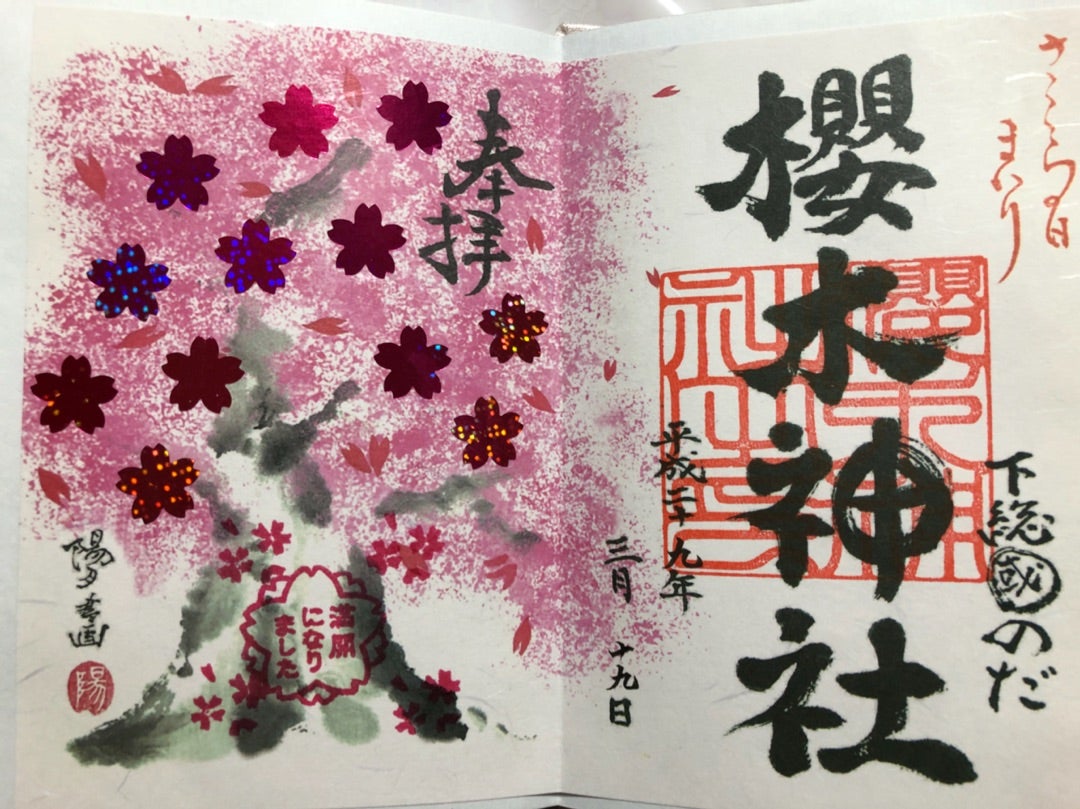 さくらの日
まいり
下総國のだ
櫻木神社
平成二十九年
三月
十九日
奉拝
満開
になり
ました
陽夕書画
陽